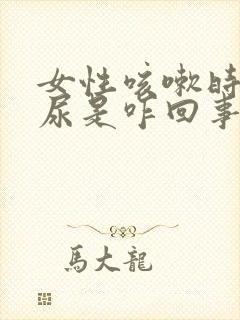 女性咳嗽时
尿是咋回事
馬大龍